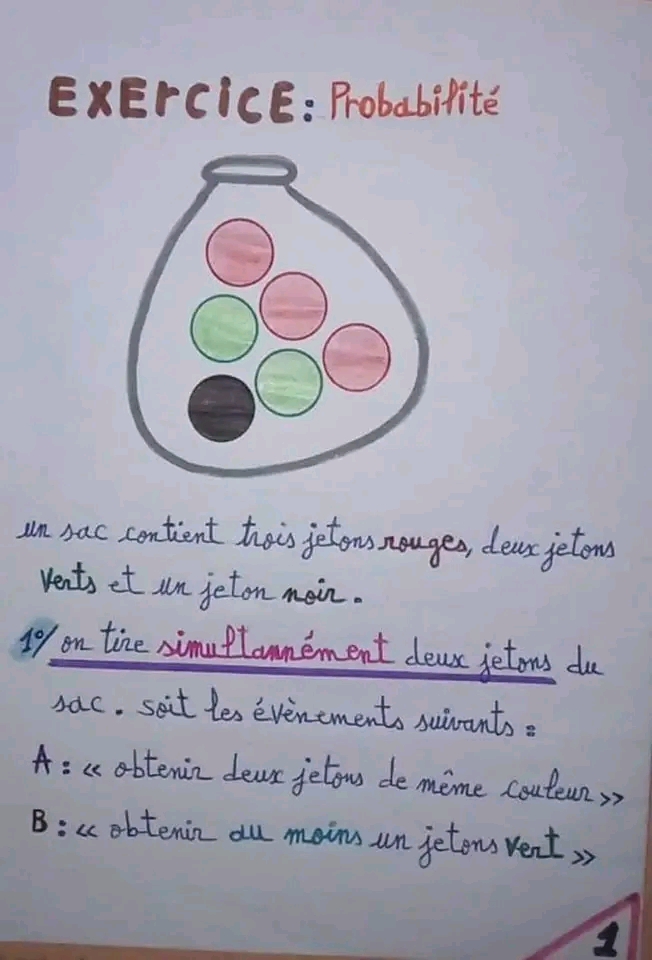 EXERCICE: Probabilité
un sac contient trois jetons rouges, deux jetons
verts et un jeton noir.
1°/ on tire simultannément deux jetons du
sac. soit les évènements suivants :
A : « obtenir deux jetons de même couleur »
B : « obtenir au moins un jetons vert »
1